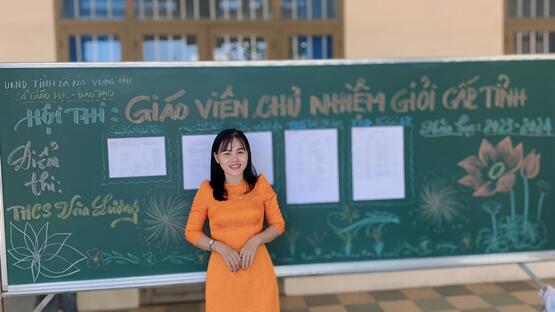 UBND TỈNH BÀ RỊA VŨNG TÀU
SỞ GIÁO DỤC - ĐÀO TẠO
HỘI THI:
GIÁO VIÊN CHỦ NHIỆM GIỎI CẤP TỈNH
Năm học: 2023-2024
Điểm
thi:
THCS Văn Lương